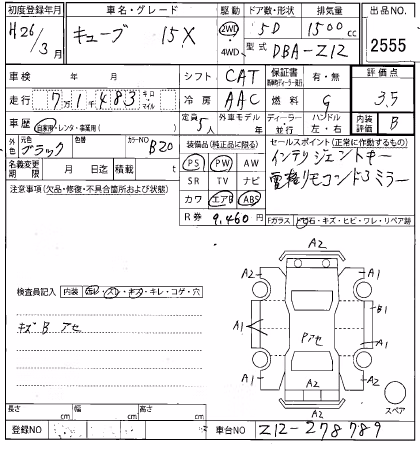 初度登録年月 車名・グレード 駆動 ドア数・形状 排気量 出品NO.
H26/3月 キューブ 15X 2WD 4WD 5D 1500cc 2555
型式 DBA-Z12
車検 年 月 シフト CAT 保証書 有・無 評価点
走行 7万1千483 キロ マイル 冷房 AAC 燃料 G 3.5
車歴 自家用・レンタ・事業用( ) 定員 5人 外車モデル 年 ディーラー 並行 ハンドル 左・右 内装 B
外色 元色 ブラック 色替 カラーNO B20 装備品(純正品に限る) セールスポイント(正常に作動するもの)
PS PW AW インテリジェントキー
名義変更期限 月 日迄 積載 t SR TV ナビ 電格リモコンドアミラー
注意事項(欠品・修復・不具合箇所および状態) カワ エアB ABS
R券 9,460円 Fガラス 飛石・キズ・ヒビ・ワレ・リペア跡
A2
A2 A1
検査員記入 内装 汚レ・スレ・キズ・キレ・コゲ・穴
A1 B1
キズB アセ Pアセ A1
A1 A2
A2 スペア
長さ cm 幅 cm 高さ cm
登録NO 車台NO Z12-278789